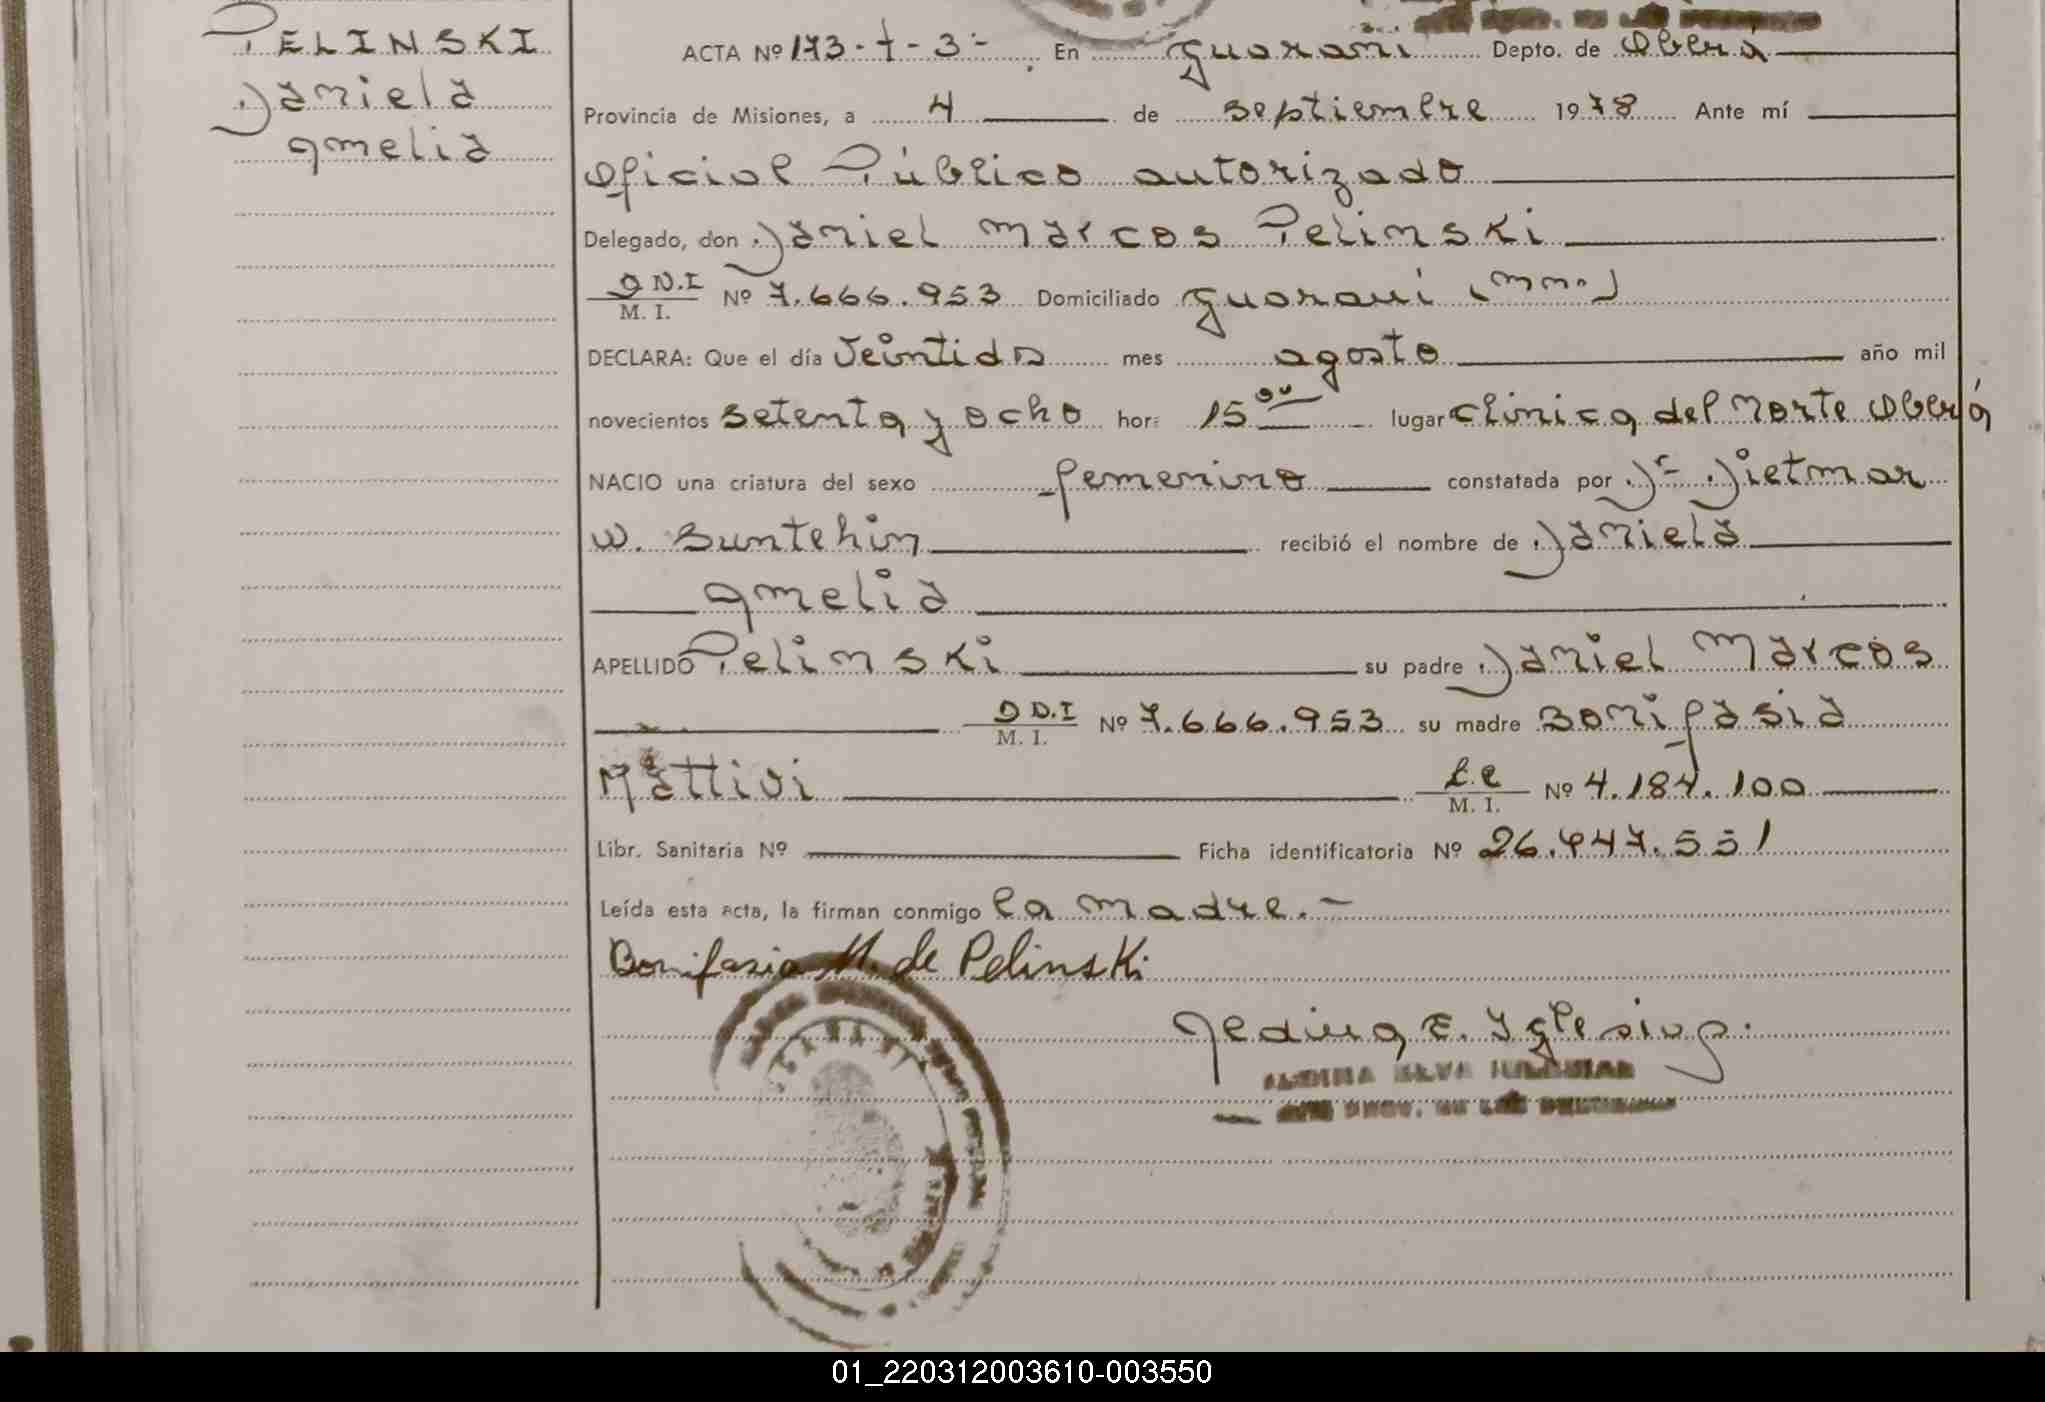 PELINSKI
Daniela
Amelia
ACTA Nº 173-t-3- En Guaraní Depto. de Oberá
Provincia de Misiones, a 4 de septiembre 1978 Ante mí
Oficial Público autorizado
Delegado, don Daniel Marcos Pelinski
D.N.I
M. I. Nº 7.666.953 Domiciliado Guaraní (mnes)
DECLARA: Que el día Veintidos mes agosto año mil
novecientos setenta y ocho hor: 15 00 lugar Clínica del Norte Oberá
NACIO una criatura del sexo femenino constatada por Dr. Dietmar
W. recibió el nombre de Daniela
Amelia
APELLIDO Pelinski su padre Daniel Marcos
D.N.I
M. I. Nº 7.666.953 su madre Bonifasia
Mattivi L.C
M. I. Nº 4.184.100
Libr. Sanitaria Nº Ficha identificatoria Nº 26.447.551
Leída esta acta, la firman conmigo la madre.-
Bonifasia M. de Pelinski
01_220312003610-003550